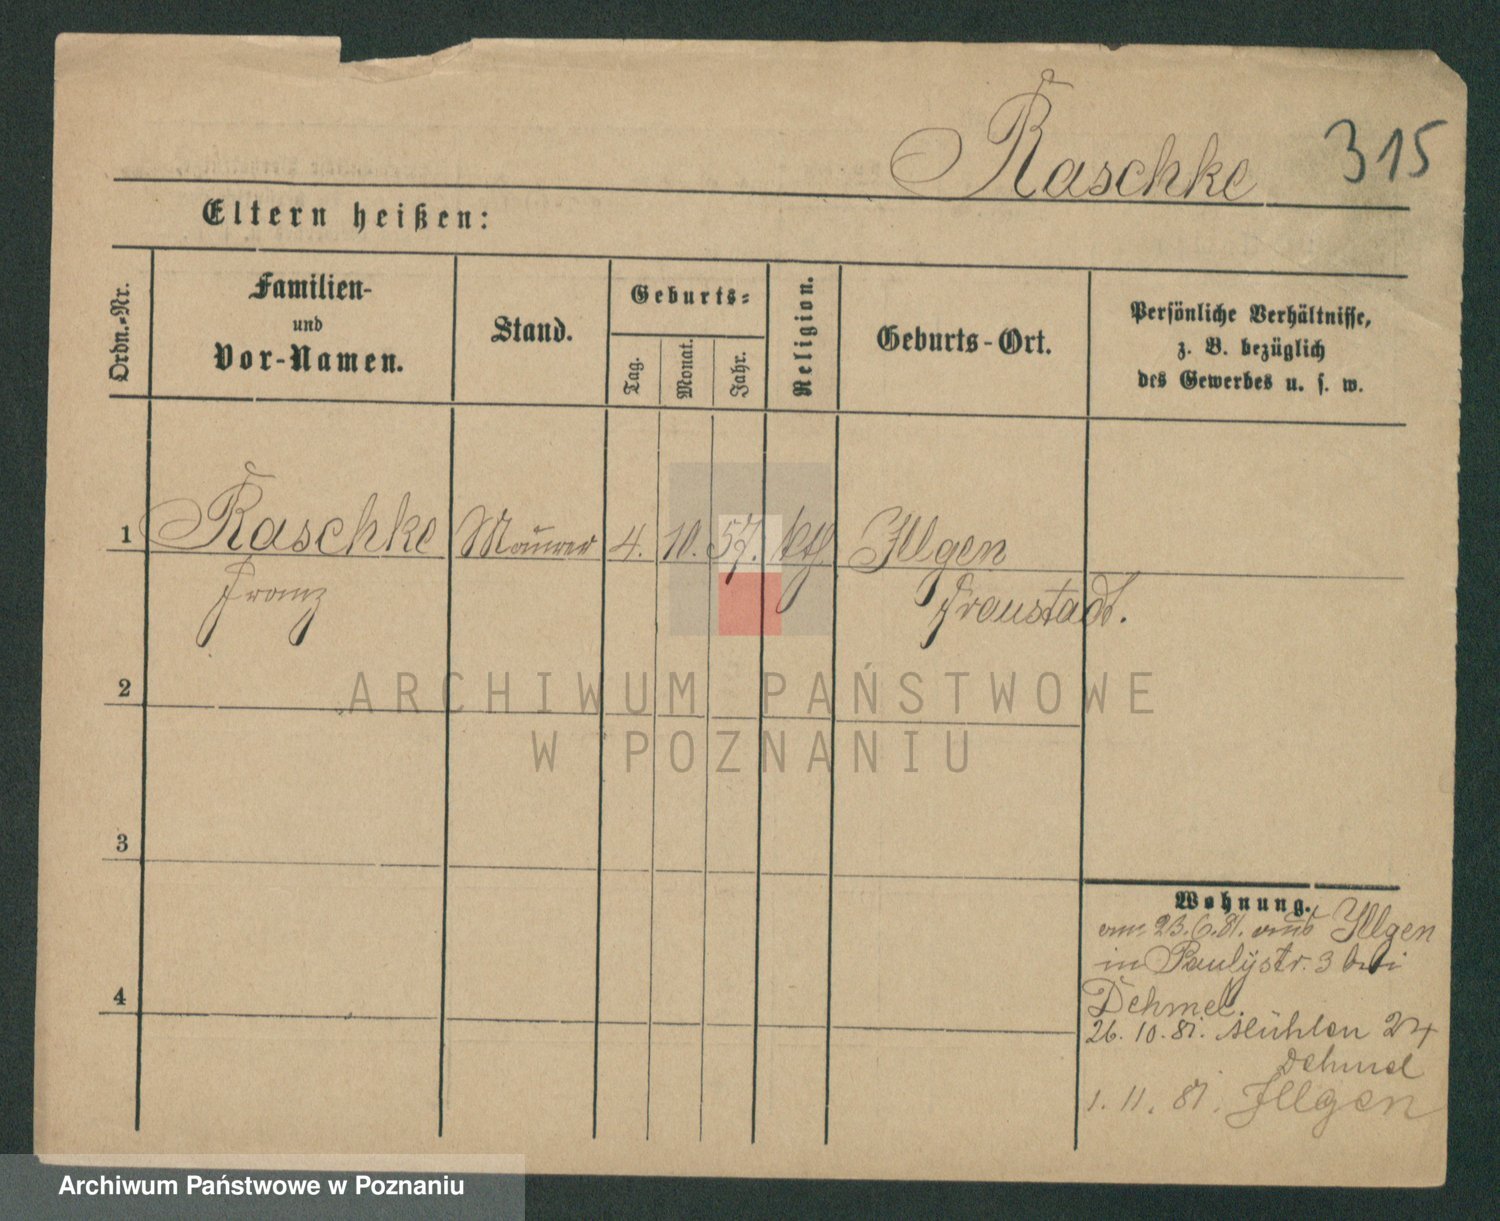 Raschke 315
Eltern heißen:
Ordn.-Nr.
Familien-
und
Vor-Namen.
Stand.
Geburts-
Tag.
Monat.
Jahr.
Religion.
Geburts-Ort.
Persönliche Verhältnisse,
z. B. bezüglich
des Gewerbes u. s. w.
1 Raschke Maurer 4. 10. 57. kth. Illgen
Franz Fraustadt.
2
ARCHIWUM PAŃSTWOWE
W POZNANIU
3
Wohnung.
am 23.6.81. aus Illgen
in Paulystr. 3 bei
4
Dehmel.
26. 10. 81. Mühlen 24
Dehmel
1. 11. 81. Illgen
Archiwum Państwowe w Poznaniu